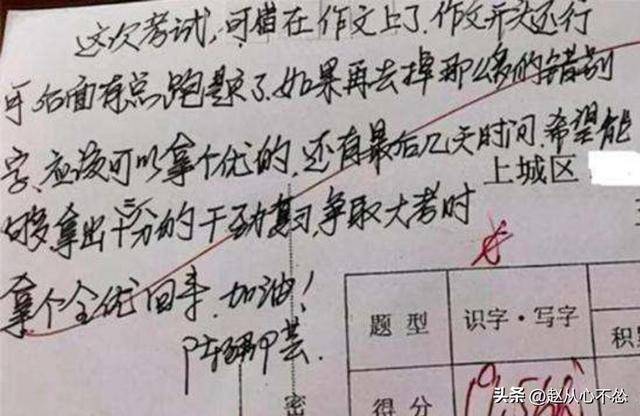 这次考试,可惜在作文上了.作文开头还行
可后面有点跑题了.如果再去掉那么多的错别
字、应该可以拿个优的.还有最后几天时间.希望能
够拿出十二分的干劲复习,争取大考时
拿个全优回来.加油!
上城区
题型
识字·写字
积
得分
密
头条 @赵从心不怂